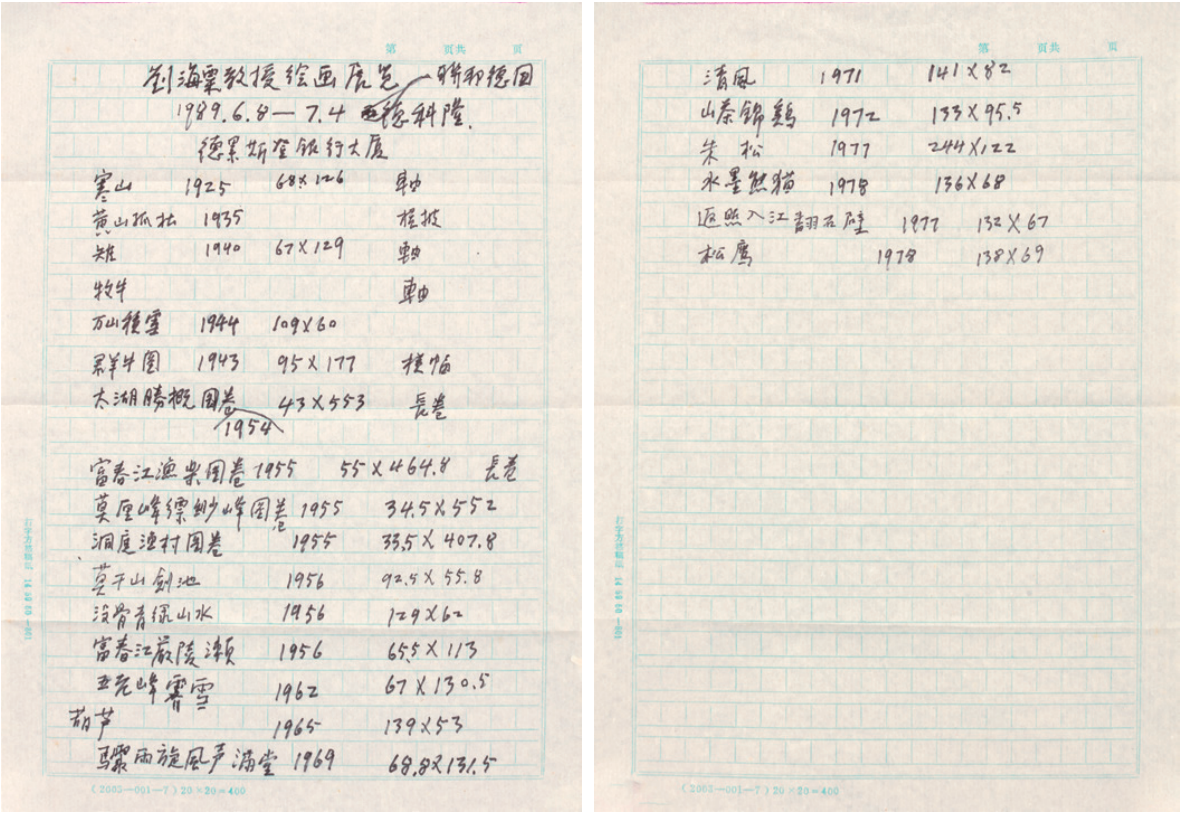 第 页共 页
劉海粟教授绘画展览 联邦德国
1989.6.8—7.4 德科隆.
德累斯登银行大厦
寒山 1925 68×126 軸
黄山孤松 1935 横披
雉 1940 67×129 軸
牧牛 軸
万山積雪 1944 109×60
群牛图 1943 95×177 横幅
太湖勝概图卷 43×553 長卷
1954
富春江漁樂图卷 1955 55×464.8 長卷
莫厘峰缥缈峰图卷 1955 34.5×552
洞庭渔村图卷 1955 33.5×407.8
莫干山剑池 1956 92.5×55.8
没骨青绿山水 1956 129×62
富春江嚴陵瀬 1956 65.5×113
五老峰霽雪 1962 67×130.5
葫芦 1965 139×53
骤雨旋風声满堂 1969 68.8×131.5
(2003—001—7)20×20=400
第 页共 页
清風 1971 141×82
山茶錦鷄 1972 133×95.5
朱松 1977 244×122
水墨熊猫 1978 136×68
返照入江翻石壁 1977 132×67
松鹰 1978 138×69
(2003—001—7)20×20=400